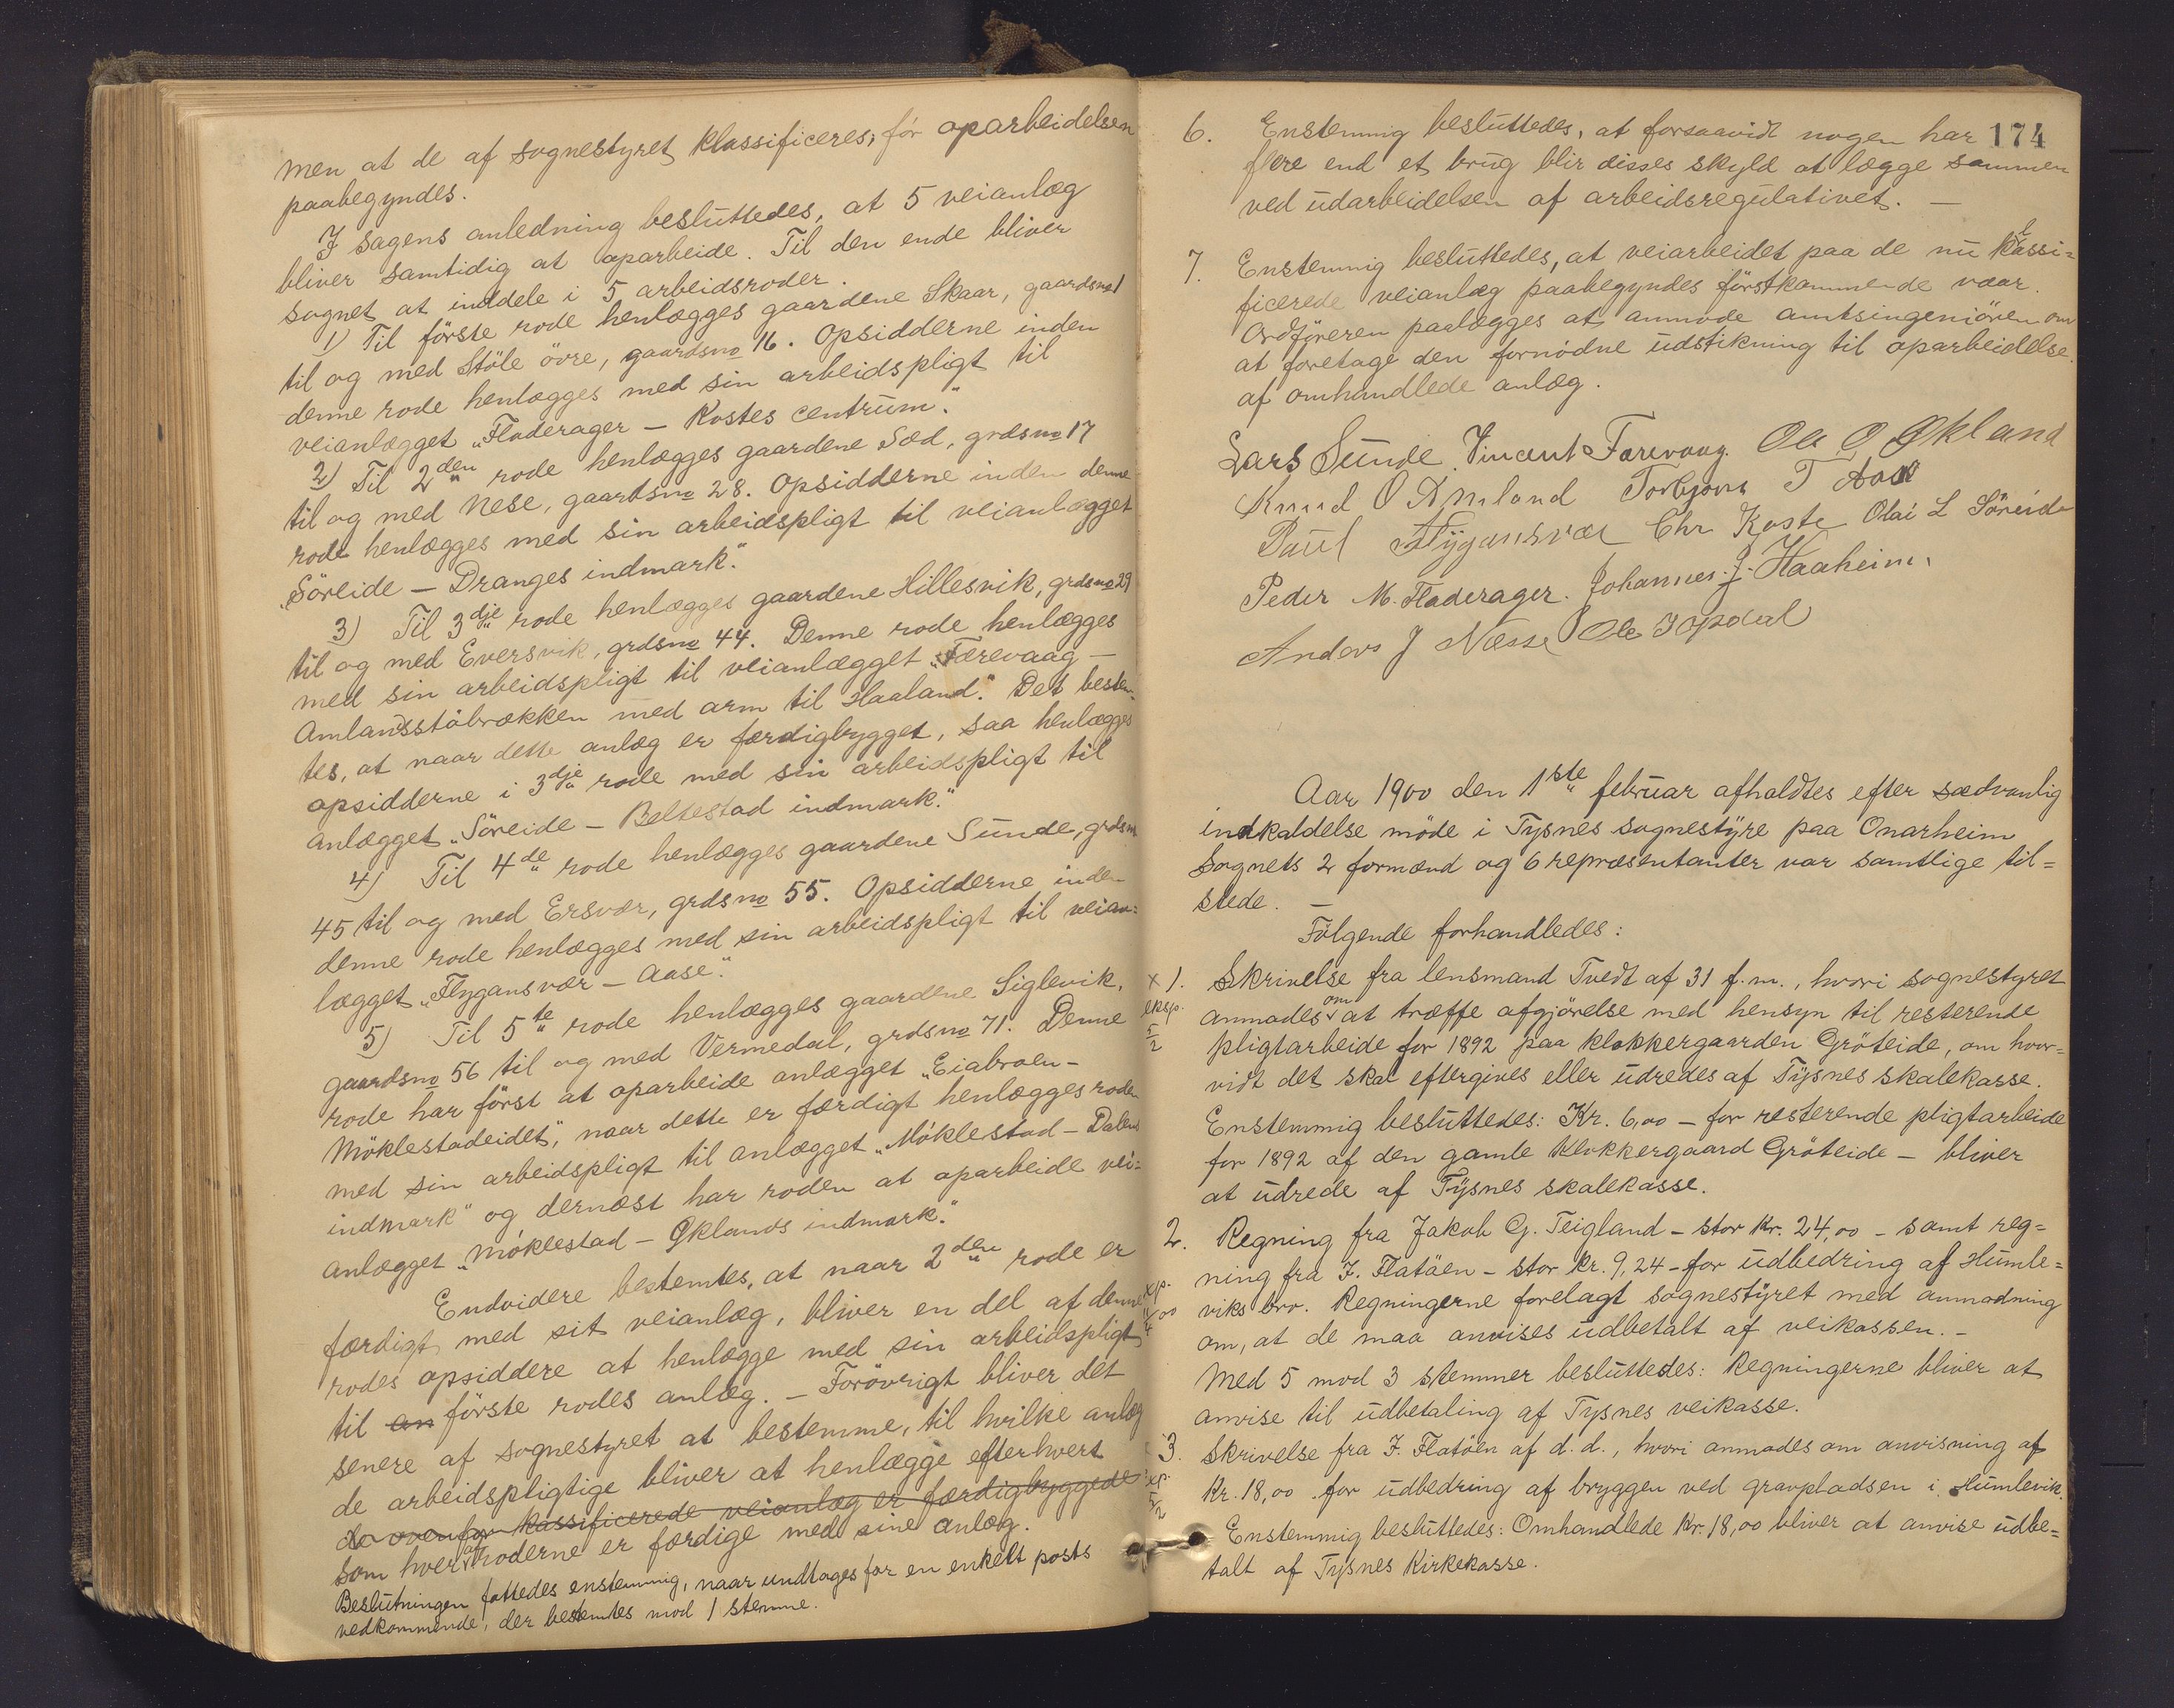 men at de af sognestyret klassificeres, før oparbeidelsen
paabegyndes.
I sagens anledning besluttedes, at 5 veianlæg
bliver samtidig at oparbeide. Til den ende bliver
sognet at inddele i 5 arbeidsroder.
1) Til første rode henlægges gaardene Skaar, gaardsno 1
til og med Støle øvre, gaardsno 16. Opsidderne inden
denne rode henlægges med sin arbeidspligt til
veianlægget „Fladerager – Kostes centrum."
2) Til 2den rode henlægges gaardene Sæd, grdsno 17
til og med Nese, gaardsno 28. Opsidderne inden denne
rode henlægges med sin arbeidspligt til veianlægget
„Søreide – Dranges indmark."
3) Til 3dje rode henlægges gaardene Hillesvik, grdsno 29
til og med Eversvik, grdsno 44. Denne rode henlægges
med sin arbeidspligt til veianlægget „Færevaag –
Amlandsstøbrækken med arm til Haaland." Det bestem-
tes, at naar dette anlæg er færdigbygget, saa henlægges
opsidderne i 3dje rode med sin arbeidspligt til
anlægget „Søreide – Beltestad indmark."
4) Til 4de rode henlægges gaardene Sunde, grdsno
45 til og med Ersvær, grdsno 55. Opsidderne inden
denne rode henlægges med sin arbeidspligt til veian=
lægget „Flygansvær – Aase".
5) Til 5te rode henlægges gaardene Siglevik,
gaardsno 56 til og med Vermedal, grdsno 71. Denne
rode har først at oparbeide anlægget „Eiabroen –
Møklestadeidet", naar dette er færdigt henlægges roden
med sin arbeidspligt til anlægget „Møklestad – Dalens
indmark" og dernæst har roden at oparbeide vei=
anlægget „Møklestad – Øklands indmark."
Endvidere bestemtes, at naar 2den rode er
færdigt med sit veianlæg, bliver en del af denne
rodes opsiddere at henlægge med sin arbeidspligt
til an første rodes anlæg. – Forøvrigt bliver det
senere af sognestyret at bestemme, til hvilke anlæg
de arbeidspligtige bliver at henlægge efterhvert
de ovenfor klassificerede veianlæg er færdigbyggede
som hver af roderne er færdige med sine anlæg.
Beslutningen fattedes enstemmig, naar undtages for en enkelt posts
vedkommende, der bestemtes mod 1 stemme.
174
6. Enstemmig besluttedes, at forsaavidt nogen har
flere end et brug blir disses skyld at lægge sammen
ved udarbeidelsen af arbeidsregulativet. –
7. Enstemmig besluttedes, at veiarbeidet paa de nu klassi=
ficerede veianlæg paabegyndes førstkommende vaar.
Ordføreren paalægges at anmode amtsingeniøren om
at foretage den fornødne udstikning til oparbeidelse
af omhandlede anlæg.
Lars Sunde. Vincent Færevaag. Ole O Økland
Knud O Amland Torbjørn T Aase
Paul Flygansvær Chr Koste Olai L Søreide
Peder M. Fladerager. Johannes J. Haaheim.
Anders J Næsse Ole Opdal
Aar 1900 den 1ste februar afholdtes efter sædvanlig
indkaldelse møde i Tysnes sognestyre paa Onarheim
Sognets 2 formænd og 6 repræsentanter var samtlige til=
stede. –
Følgende forhandledes:
x 1. Skrivelse fra lensmand Tvedt af 31 f.m., hvori sognestyret
eksp. anmodes om at træffe afgjørelse med hensyn til resterende
5/2 pligtarbeide for 1892 paa klokkergaarden Grøteide, om hvor=
vidt det skal eftergives eller udredes af Tysnes skalekasse.
Enstemmig besluttedes: Kr. 6,00 – for resterende pligtarbeide
for 1892 af den gamle Klokkergaard Grøteide – bliver
at udrede af Tysnes skalekasse.
2. Regning fra Jakob G. Teigland – stor Kr. 24,00 – samt reg=
ning fra J. Flatøen – stor Kr. 9,24 – for udbedring af Humle=
viks bro. Regningerne forelagt sognestyret med anmodning
om, at de maa anvises udbetalt af veikassen. –
Med 5 mod 3 stemmer besluttedes: Regningerne bliver at
anvise til udbetaling af Tysnes veikasse.
3. Skrivelse fra J. Flatøen af d.d., hvori anmodes om anvisning af
Kr. 18,00 for udbedring af bryggen ved gravpladsen i Humlevik.
Enstemmig besluttedes: Omhandlede Kr. 18,00 bliver at anvise udbe=
talt af Tysnes Kirkekasse.